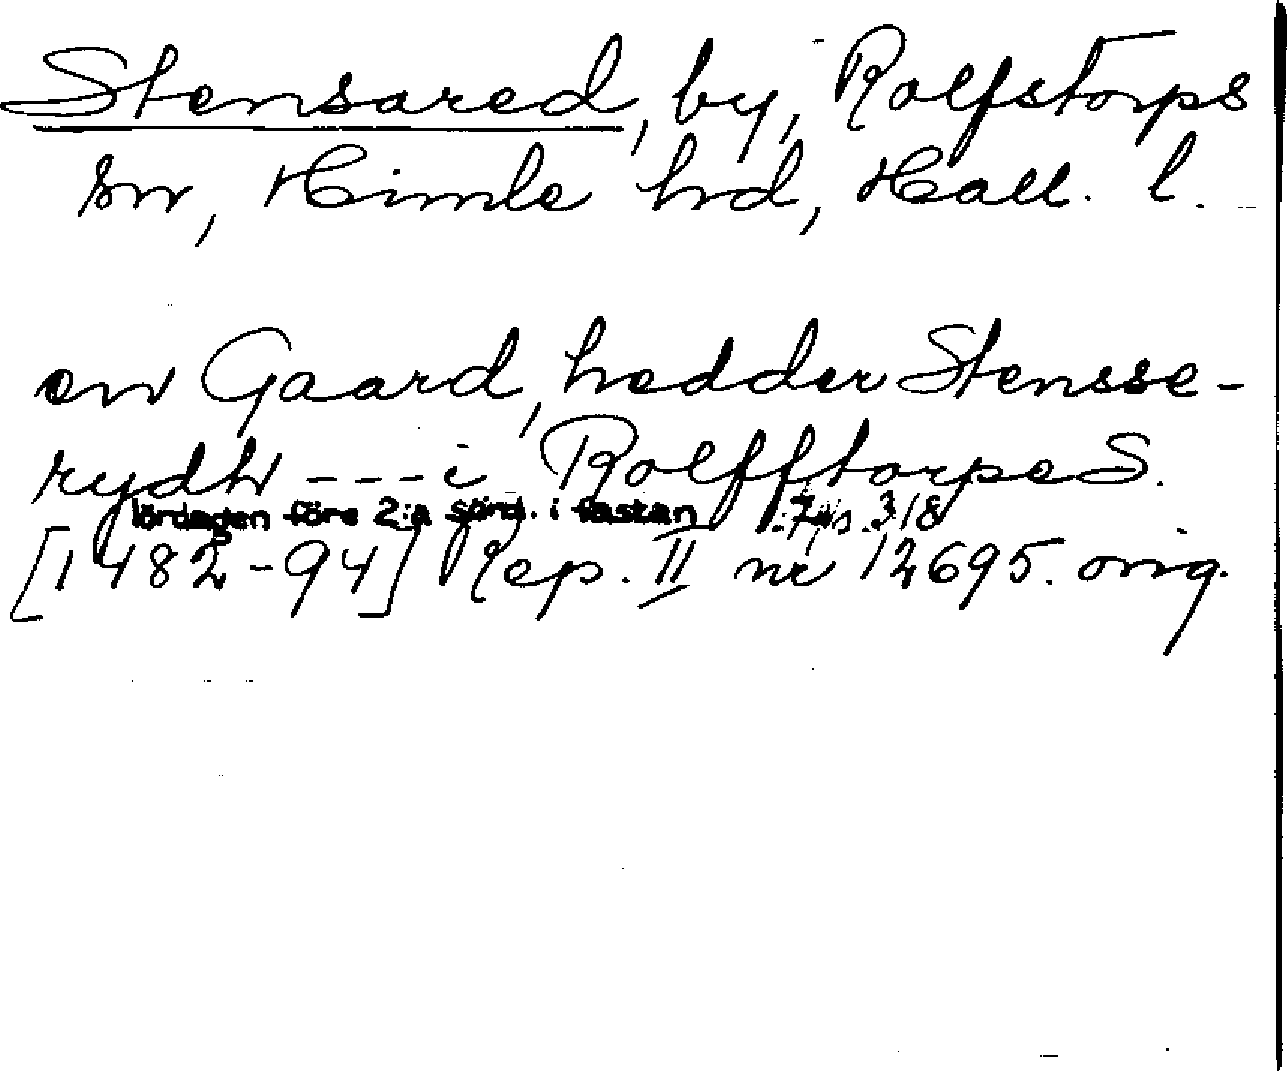 Stensared, by, Rolfstorps
sn, Himle hd, Hall. l.
en Gaard, hedder Stensse-
rydh --- i Rolfftorpe S.
lördagen före 2:a sönd. i fastan : 7, s. 318
[1482-94] Rep. II nr 12695. orig.